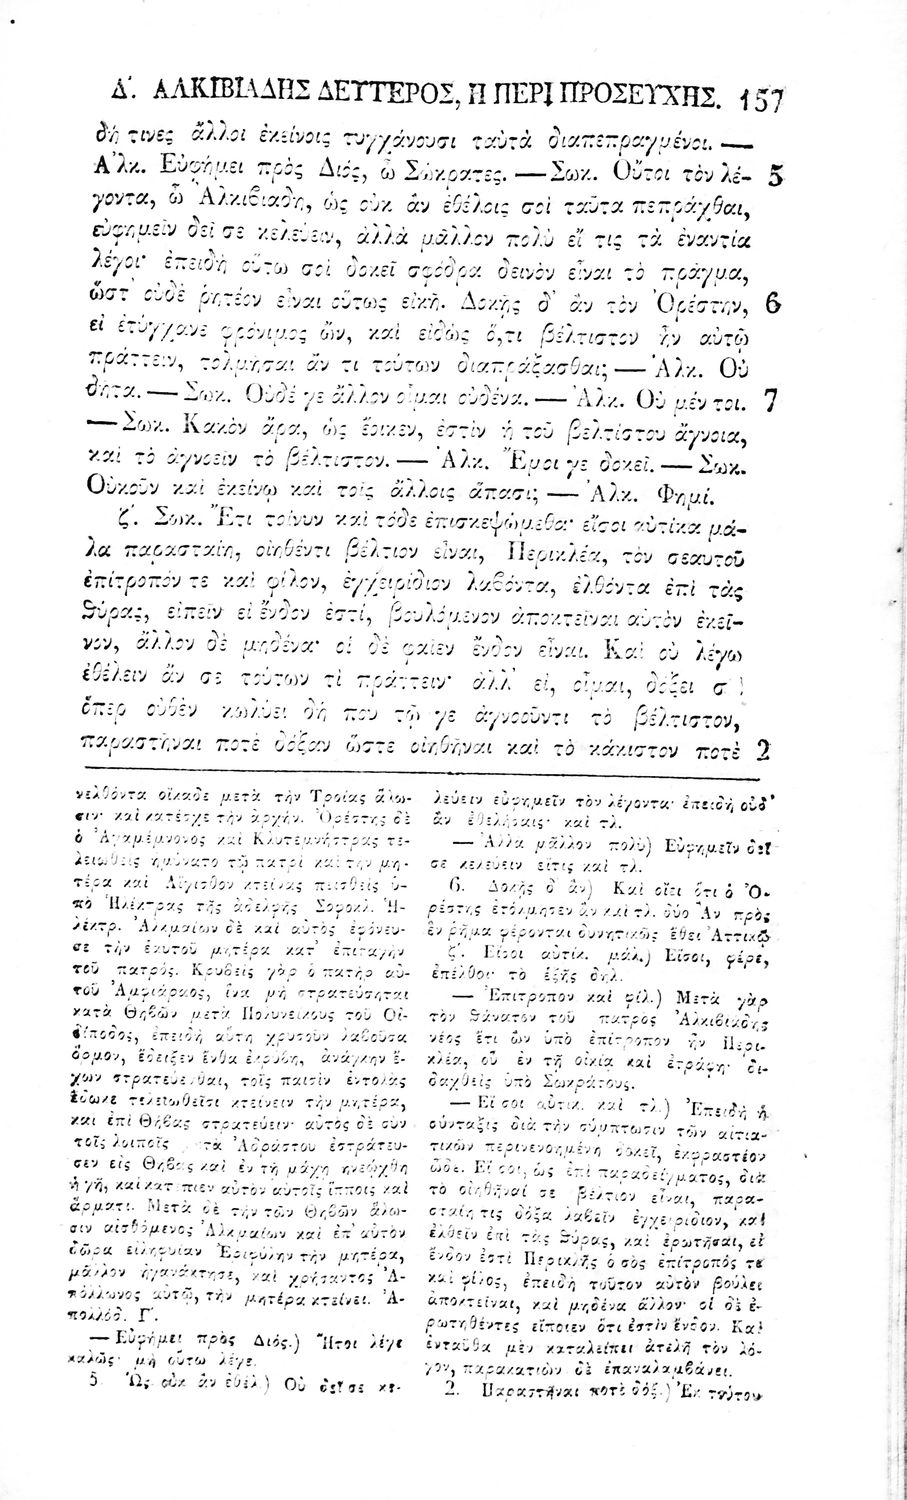 Δ΄. ΑΛΚΙΒΙΑΔΗΣ ΔΕΥΤΕΡΟΣ, Η ΠΕΡΙ ΠΡΟΣΕΥΧΗΣ. 157
δή τινες ἄλλοι ἐκείνοις τυγχάνουσι ταὐτὰ διαπεπραγμένοι. —
Ἀλκ. Εὐφήμει πρὸς Διός, ὦ Σώκρατες. — Σωκ. Οὔτοι τὸν λέ- 5
γοντα, ὦ Ἀλκιβιάδη, ὡς οὐκ ἂν ἐθέλοις σοὶ ταῦτα πεπράχθαι,
εὐφημεῖν δεῖ σε κελεύειν, ἀλλὰ μᾶλλον πολὺ εἴ τις τὰ ἐναντία
λέγοι· ἐπειδὴ οὕτω σοὶ δοκεῖ σφόδρα δεινὸν εἶναι τὸ πρᾶγμα,
ὥστ᾿ οὐδὲ ῥητέον εἶναι οὕτως εἰκῆ. Δοκῆς δ᾿ ἂν τὸν Ὀρέστην, 6
εἰ ἐτύγχανε φρόνιμος ὤν, καὶ εἰδὼς ὅ,τι βέλτιστον ἦν αὐτῷ
πράττειν, τολμῆσαι ἄν τι τούτων διαπράξασθαι; — Ἀλκ. Οὐ
δῆτα. — Σωκ. Οὐδέ γε ἄλλον οἶμαι οὐδένα. — Ἀλκ. Οὐ μέν τοι. 7
— Σωκ. Κακὸν ἄρα, ὡς ἔοικεν, ἐστὶν ἡ τοῦ βελτίστου ἄγνοια,
καὶ τὸ ἀγνοεῖν τὸ βέλτιστον. — Ἀλκ. Ἔμοι γε δοκεῖ. — Σωκ.
Οὐκοῦν καὶ ἐκείνῳ καὶ τοῖς ἄλλοις ἅπασι; — Ἀλκ. Φημί.
ζ΄. Σωκ. Ἔτι τοίνυν καὶ τόδε ἐπισκεψώμεθα· εἴσοι αὐτίκα μά-
λα παρασταίη, οἰηθέντι βέλτιον εἶναι, Περικλέα, τὸν σεαυτοῦ
ἐπίτροπόν τε καὶ φίλον, ἐγχειρίδιον λαβόντα, ἐλθόντα ἐπὶ τὰς
θύρας, εἰπεῖν εἰ ἔνδον ἐστί, βουλόμενον ἀποκτεῖναι αὐτὸν ἐκεῖ-
νον, ἄλλον δὲ μηδένα· οἱ δὲ φαῖεν ἔνδον εἶναι. Καὶ οὐ λέγω
ἐθέλειν ἄν σε τούτων τὶ πράττειν· ἀλλ᾿ εἰ, οἶμαι, δόξει σ
ὅπερ οὐθὲν κωλύει δή που τῷ γε ἀγνοοῦντι τὸ βέλτιστον,
παραστῆναι ποτὲ δόξαν ὥστε οἰηθῆναι καὶ τὸ κάκιστον ποτὲ 2
νελθόντα οἴκαδε μετὰ τὴν Τροίας ἅλω-
σιν· καὶ κατέσχε τὴν ἀρχήν. Ὀρέστης δὲ
ὁ Ἀγαμέμνονος καὶ Κλυτεμνήστρας τε-
λειωθεὶς ἠμύνατο τῷ πατρὶ καὶ τὴν μη-
τέρα καὶ Αἴγισθον κτείνας πεισθεὶς ὑ-
πὸ Ἠλέκτρας τῆς ἀδελφῆς Σοφοκλ. Ἠ-
λέκτρ. Ἀλκμαίων δὲ καὶ αὐτὸς ἐφόνευ-
σε τὴν ἑαυτοῦ μητέρα κατ᾿ ἐπιταγὴν
τοῦ πατρός. Κρυβεὶς γὰρ ὁ πατὴρ αὐ-
τοῦ Ἀμφιάραος, ἵνα μὴ στρατεύσηται
κατὰ Θηβῶν μετὰ Πολυνείκους τοῦ Οἰ-
δίποδος, ἐπειδὴ αὕτη χρυσοῦν λαβοῦσα
ὅρμον, ἔδειξεν ἔνθα ἐκρύβη, ἀνάγκην ἔ-
χων στρατεύεσθαι, τοῖς παισὶν ἐντολὰς
ἔδωκε τελειωθεῖσι κτείνειν τὴν μητέρα,
καὶ ἐπὶ Θήβας στρατεύειν· αὐτὸς δὲ σὺν
τοῖς λοιποῖς τὰ Ἀδράστου ἐστράτευ-
σεν εἰς Θήβας καὶ ἐν τῇ μάχῃ ἠνεῴχθη
ἡ γῆ, καὶ κατέπιεν αὐτὸν αὐτοῖς ἵπποις καὶ
ἅρματι. Μετὰ δὲ τὴν τῶν Θηβῶν ἅλω-
σιν αἰσθόμενος Ἀλκμαίων καὶ ἐπ᾿ αὐτὸν
δῶρα εἰληφυῖαν Ἐριφύλην τὴν μητέρα,
μᾶλλον ἠγανάκτησε, καὶ χρήσαντος Ἀ-
πόλλωνος αὐτῷ, τὴν μητέρα κτείνει. Ἀ-
πολλόδ. Γ΄.
— Εὐφήμει πρὸς Διός.) Ἤτοι λέγε
καλῶς· μὴ οὕτω λέγε.
5. Ὡς οὐκ ἂν ἐθέλ.) Οὐ δεῖ σε κε-
λεύειν εὐφημεῖν τὸν λέγοντα· ἐπειδὴ οὐδ᾿
ἂν ἐθελήσαις· καὶ τλ.
— Ἀλλὰ μᾶλλον πολὺ) Εὐφημεῖν δεῖ
σε κελεύειν εἴτις καὶ τλ.
6. Δοκῆς δ᾿ ἂν) Καὶ οἴει ὅτι ὁ Ὀ-
ρέστης ἐτόλμησεν ἂν καὶ τλ. δύο Ἂν πρὸς
ἓν ῥῆμα φέρονται δυνητικῶς ἔθει Ἀττικῷ
ζ΄. Εἴσοι αὐτίκ. μάλ.) Εἴσοι, φέρε,
ἐπέλθοι· τὸ ἑξῆς δηλ.
— Ἐπίτροπον καὶ φίλ.) Μετὰ γὰρ
τὸν θάνατον τοῦ πατρὸς Ἀλκιβιάδης
νέος ἔτι ὢν ὑπὸ ἐπίτροπον ἦν Περι-
κλέα, οὗ ἐν τῇ οἰκίᾳ καὶ ἐτράφη· δι-
δαχθεὶς ὑπὸ Σωκράτους.
— Εἴ σοι αὐτίκ. καὶ τλ.) Ἐπειδὴ ἡ
σύνταξις διὰ τὴν σύμπτωσιν τῶν αἰτια-
τικῶν περινενοημένη δοκεῖ, ἐκφραστέον
ὧδε. Εἴ σοι, ὡς ἐπὶ παραδείγματος, διὰ
τὸ οἰηθῆναί σε βέλτιον εἶναι, παρα-
σταίη τις δόξα λαβεῖν ἐγχειρίδιον, καὶ
ἐλθεῖν ἐπὶ τὰς θύρας, καὶ ἐρωτῆσαι, εἰ
ἔνδον ἐστὶ Περικλῆς ὁ σὸς ἐπίτροπός τε
καὶ φίλος, ἐπειδὴ τοῦτον αὐτὸν βούλει
ἀποκτεῖναι, καὶ μηδένα ἄλλον· οἱ δὲ ἐ-
ρωτηθέντες εἴποιεν ὅτι ἐστὶν ἔνδον. Καὶ
ἐνταῦθα μὲν καταλείπει ἀτελῆ τὸν λό-
γον, παρακατιὼν δὲ ἐπαναλαμβάνει.
2. Παραστῆναι ποτὲ δόξ.) Ἐκ τούτου